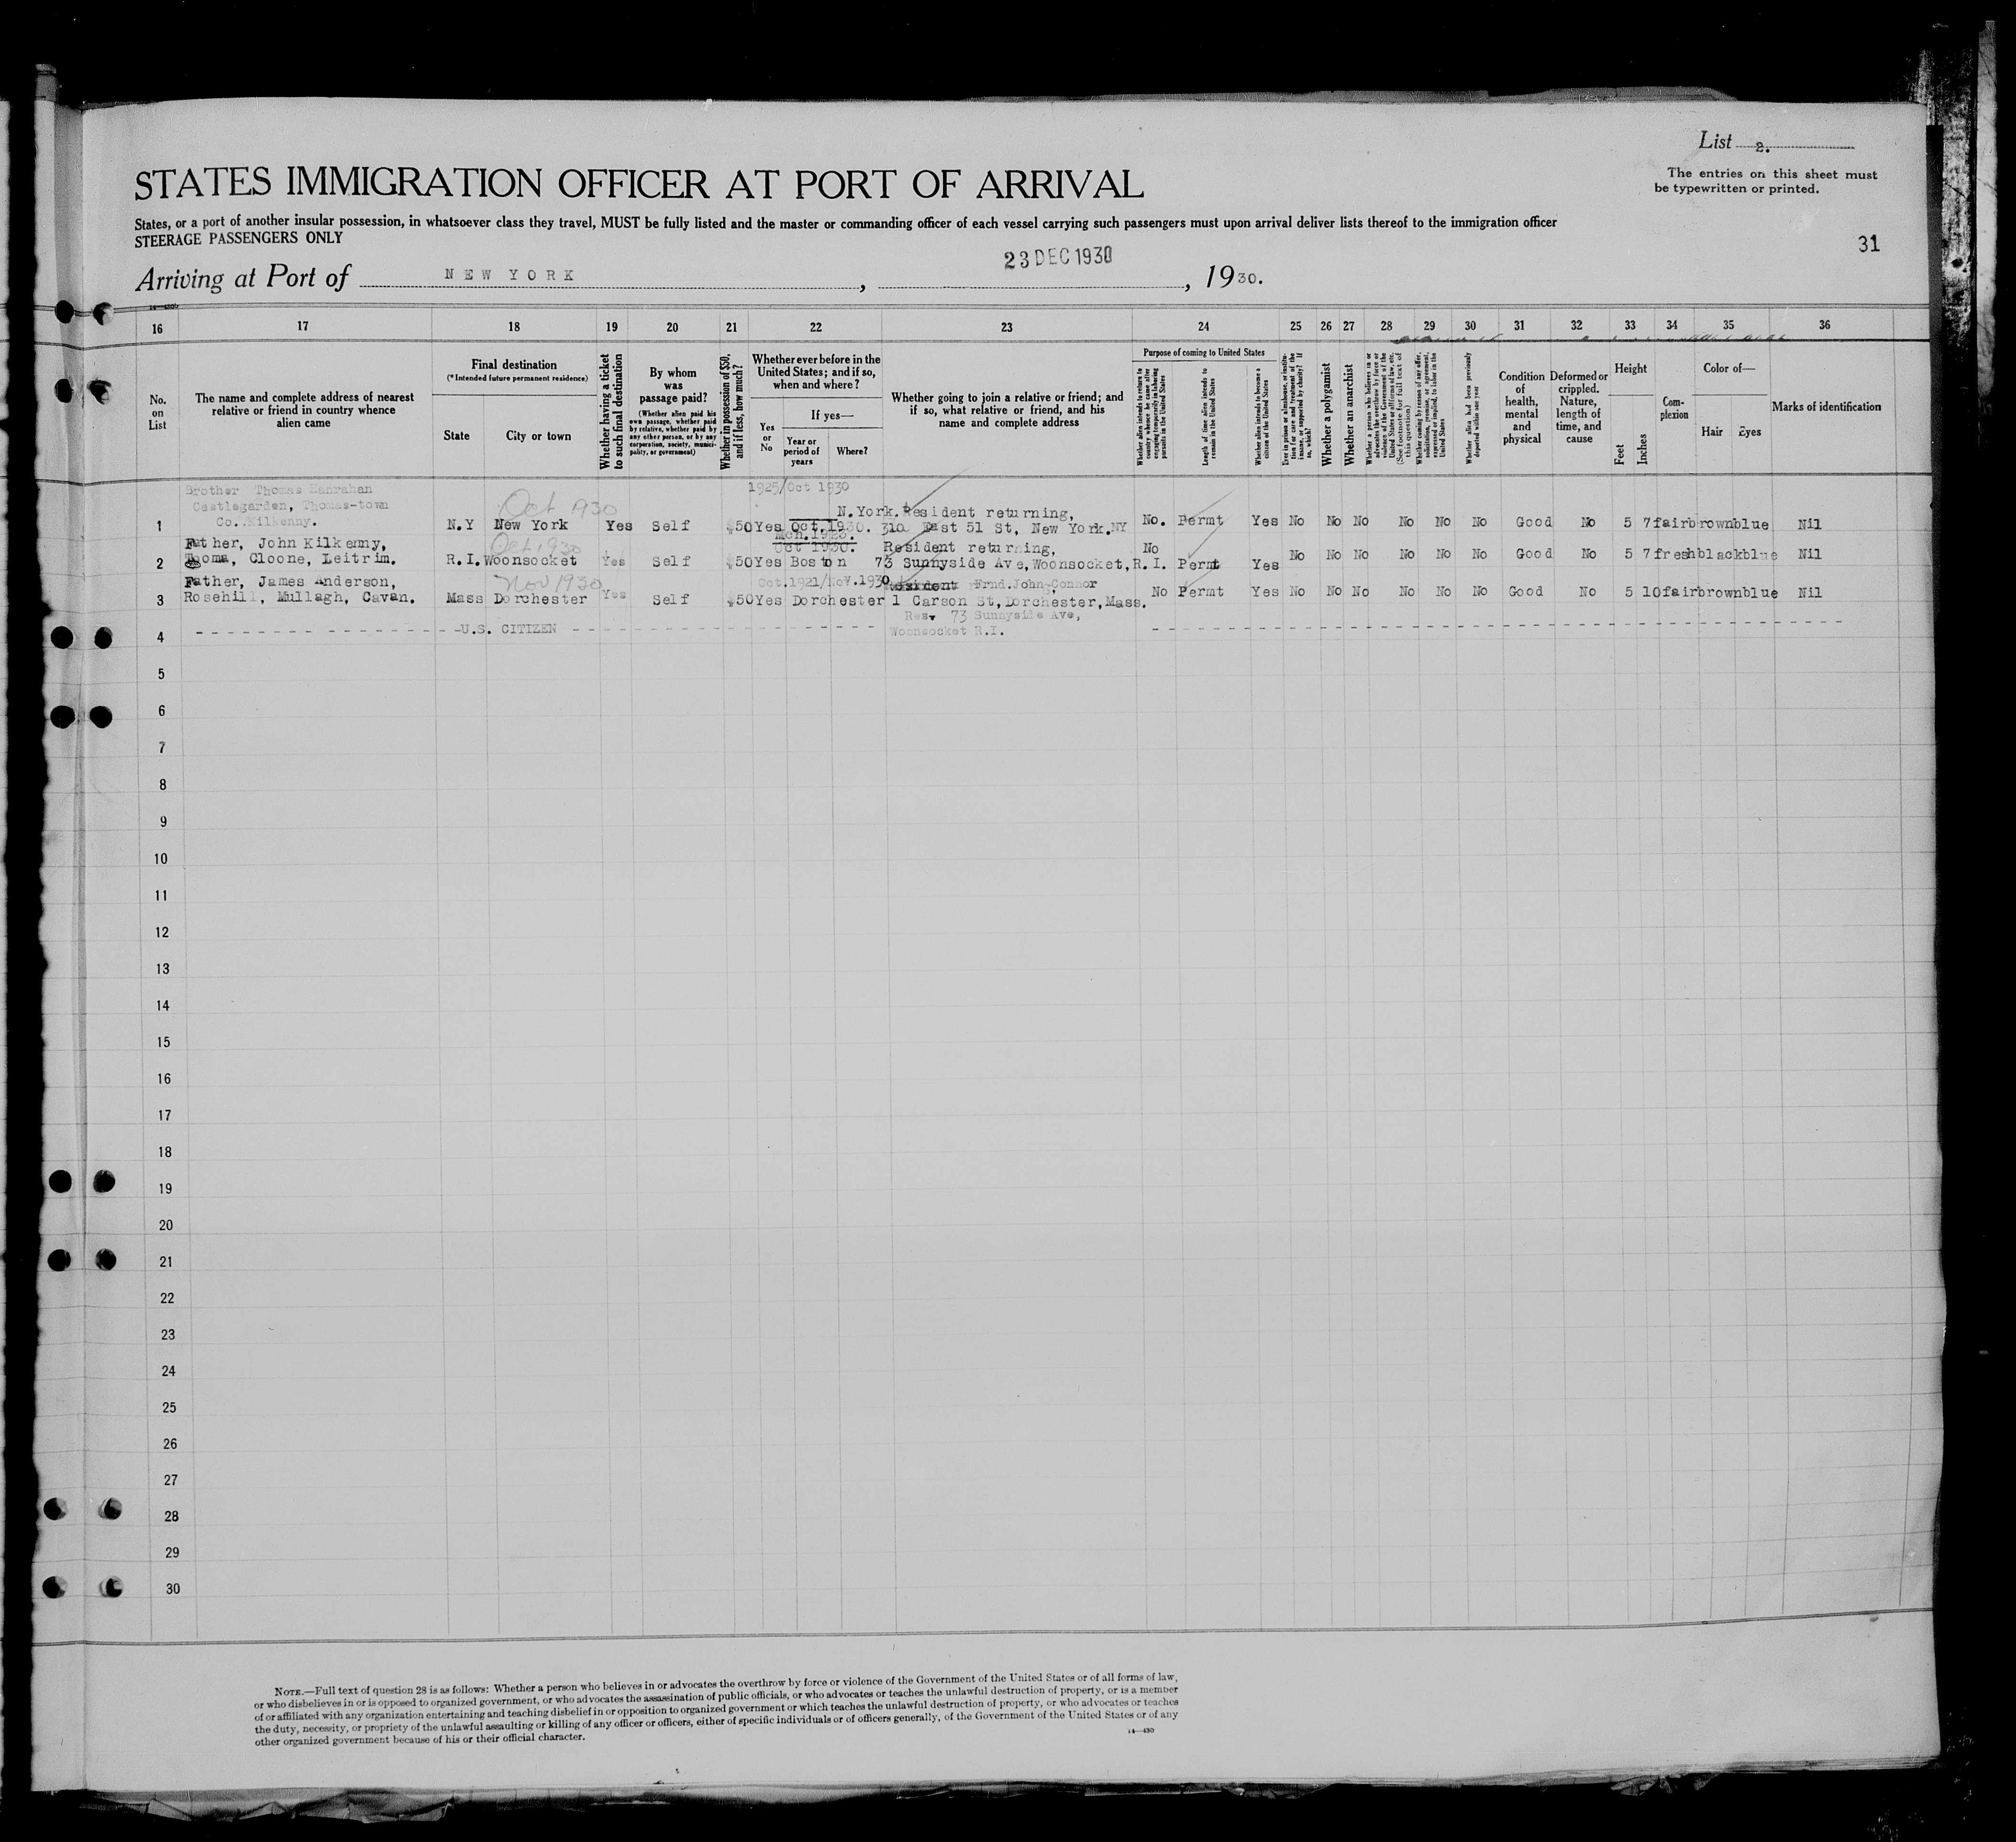 List 2.
The entries on this sheet must
be typewritten or printed.
STATES IMMIGRATION OFFICER AT PORT OF ARRIVAL
States, or a port of another insular possession, in whatsoever class they travel, MUST be fully listed and the master or commanding officer of each vessel carrying such passengers must upon arrival deliver lists thereof to the immigration officer
STEERAGE PASSENGERS ONLY
31
Arriving at Port of NEW YORK, 23 DEC 1930, 1930.
16 17 18 19 20 21 22 23 24 25 26 27 28 29 30 31 32 33 34 35 36
No. on List
The name and complete address of nearest relative or friend in country whence alien came
Final destination
(*Intended future permanent residence)
State
City or town
Whether having a ticket to such final destination
By whom was passage paid?
(Whether alien paid his own passage, whether paid by relative, whether paid by any other person, or by any corporation, society, municipality, or government)
Whether in possession of $50, and if less, how much?
Whether ever before in the United States; and if so, when and where?
Yes or No
If yes—
Year or period of years
Where?
Whether going to join a relative or friend; and if so, what relative or friend, and his name and complete address
Purpose of coming to United States
Whether alien intends to return to country whence he came after engaging temporarily in laboring pursuits in the United States
Length of time alien intends to remain in the United States
Whether alien intends to become a citizen of the United States
Ever in prison or almshouse, or institution for care and treatment of the insane, or supported by charity? If so, which?
Whether a polygamist
Whether an anarchist
Whether a person who believes in or advocates the overthrow by force or violence of the Government of the United States or all forms of law, etc. (See footnote for full text of this question)
Whether coming by reason of any offer, solicitation, promise, or agreement, expressed or implied, to labor in the United States
Whether alien had been previously deported within one year
Condition of health, mental and physical
Deformed or crippled. Nature, length of time, and cause
Height
Feet
Inches
Complexion
Color of—
Hair
Eyes
Marks of identification
Brother Thomas Hanrahan 1925/Oct 1930
Castlegarden, Thomas-town Oct 1930
Co. Kilkenny. N.York. Resident returning,
1 N.Y New York Yes Self $50 Yes Oct.1930. 310 East 51 St, New York.NY No. Permt Yes No No No No No No Good No 5 7 fair brown blue Nil
Father, John Kilkenny, Oct 1930 Oct 1930. Resident returning, No
2 Cloone, Leitrim. R.I. Woonsocket Yes Self $50 Yes Boston 73 Sunnyside Ave, Woonsocket, R.I. Permt Yes No No No No No No Good No 5 7 fresh black blue Nil
Father, James Anderson, Nov 1930 Oct.1921/Nov.1930 Resident Frnd. John Connor
3 Rosehill, Mullagh, Cavan. Mass Dorchester Yes Self $50 Yes Dorchester 1 Carson St, Dorchester, Mass. No Permt Yes No No No No No No Good No 5 10 fair brown blue Nil
Res. 73 Sunnyside Ave,
4 U.S. CITIZEN Woonsocket R.I.
5
6
7
8
9
10
11
12
13
14
15
16
17
18
19
20
21
22
23
24
25
26
27
28
29
30
NOTE.—Full text of question 28 is as follows: Whether a person who believes in or advocates the overthrow by force or violence of the Government of the United States or of all forms of law,
or who disbelieves in or is opposed to organized government, or who advocates the assassination of public officials, or who advocates or teaches the unlawful destruction of property, or is a member
of or affiliated with any organization entertaining and teaching disbelief in or opposition to organized government or which teaches the unlawful destruction of property, or who advocates or teaches
the duty, necessity, or propriety of the unlawful assaulting or killing of any officer or officers, either of specific individuals or of officers generally, of the Government of the United States or of any
other organized government because of his or their official character.
14—430